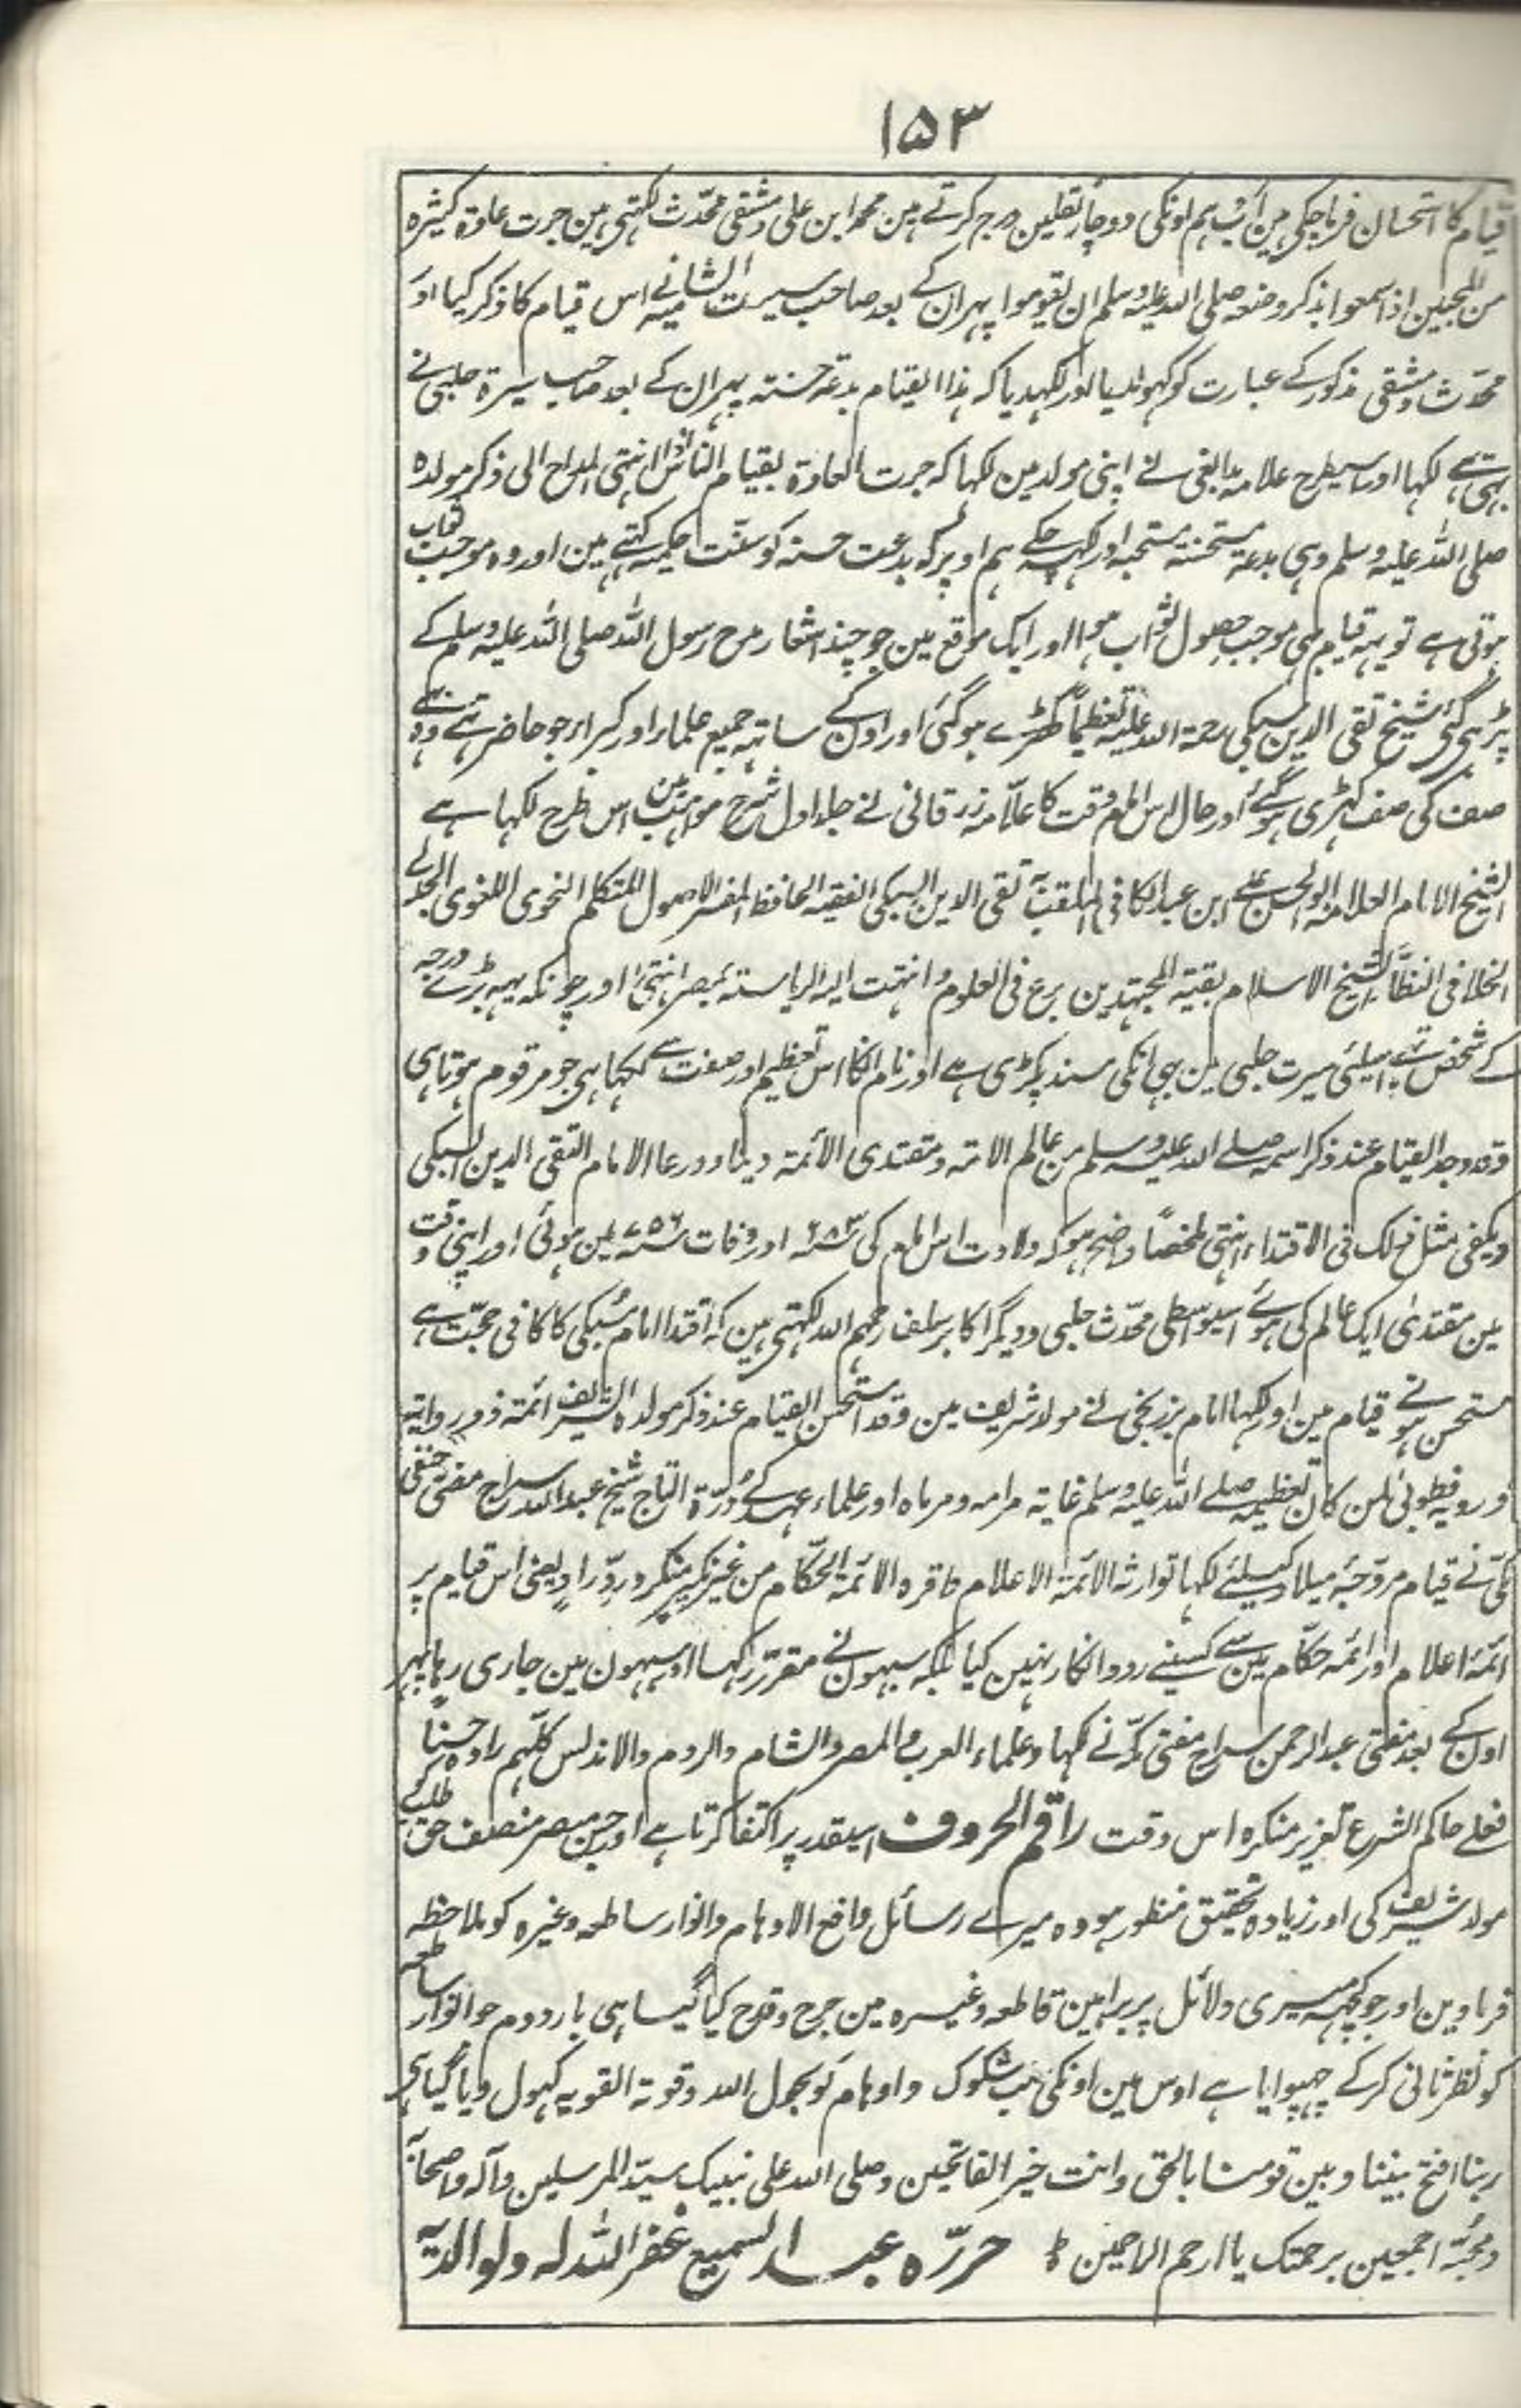 ۱۵۳
قیام کا استحسان فرما چکی ہین اب ہم اونکی دو چار نقلین درج کرتے ہین محمد ابن علی دمشقی محدّث لکہتی ہین جرت عادة کثیرہ
من المحبین اذا سمعوا بذکر وضعہ صلی اللہ علیہ وسلم ان یقوموا پہر ان کے بعد صاحب سیرت الشامیہ نے اس قیام کا ذکر کیا اور
محدّث دمشقی مذکور کے عبارت کو کہول دیا اور لکہدیا کہ ہذا القیام بدعة حسنتہ پہر ان کے بعد صاحب سیرة حلبی نے
بہی لکہا اور اسیطرح علامہ مدابغی نے اپنی مولد مین لکہا کہ جرت العادة بقیام الناس اذا انتہی المداح الی ذکر مولدہ
صلی اللہ علیہ وسلم وہی بدعة مستحسنتہ مستحبہ اور کہہ چکے ہم اوپر کہ بدعت حسنہ کو سنّت حکمیہ کہتے ہین اور وہ موجب ثواب
ہوتی ہے تو یہہ قیام بہی موجب حصول ثواب ہوا اور ایک موقع مین جو چند اشعار مدح رسول اللہ صلی اللہ علیہ وسلم کے
پڑہی گئی شیخ تقی الدین سبکی رحمۃ اللہ علیہ تعظیماً کھڑے ہوگئی اور اون کے ساتہہ جمیع علماء اور کبراء جو حاضر تہے وہ بہی
صف کی صف کہڑی ہوگئے اور حال اس امام وقت کا علّامہ زرقانی نے جلد اول شرح مواہب مین اس طرح لکہا ہے
الشیخ الامام العلامہ ابو الحسن علی ابن عبد الکافی الملقب تقی الدین السبکی الفقیہ الحافظ المفسر الاصول المتکلم النحوی اللغوی الجدلی
الخلافی النظّار شیخ الاسلام بقیة المجتہدین برع فی العلوم وانتہت الیہ الریاستہ بمصر انتہیٰ اور چونکہ یہہ بڑے درجہ
کے شخص تہے اسلئی سیرت حلبی مین بہی انکی سند پکڑی ہے اور نام انکا اس تعظیم اور صفت سے لکہا ہی جو مرقوم ہوتا ہی
وقد وجد القیام عند ذکر اسمہ صلے اللہ علیہ وسلم من عالم الامتہ ومقتدی الأئمة دینا وورعا الامام التقی الدین السبکی
ویکفی مثل ذلک فی الاقتداء انتہی ملخصاً واضح ہو کہ ولادت اس امام کی ۶۸۳ اور وفات ۷۵۶ مین ہوئی اور اپنی وقت
مین مقتدیٰ ایک عالم کی ہوئے اسیواسطی محدّث حلبی ودیگر اکابر سلف رحمہم اللہ لکہتی ہین کہ اقتدا امام سُبکی کا کافی حجّت ہے
مستحسن ہونے قیام مین اور لکہا امام برزنجی نے مولد شریف مین وقد استحسن القیام عند ذکر مولدہ الشریف ائمة ذوو روایتہ
ورویہ فطوبیٰ لمن کان تعظیمہ صلے اللہ علیہ وسلم غایة مرامہ ومرماہ اور علماء عہد کے دُرّة التاج شیخ عبد اللہ سراج مفتی حنفی
مکّی نے قیام مروّجہ میلاد کیلئے لکہا توارثہ الائمة الاعلام واقرہ الائمة والحکام من غیر نکیر منکر ورد راد یعنی اس قیام پر
ائمہ اعلام اور ائمہ حکّام مین سے کسینے رد وانکار نہین کیا بلکہ سبہون نے مقرّر رکہا اور سبہون مین جاری رہا پہر
اون کے بعد مفتی عبد الرحمن سراج مفتی مکّہ نے لکہا وعلماء العرب والمصر والشام والروم والاندلس کلّہم راوہ حسناً
فعلے حاکم الشرع تعزیر منکرہ اس وقت راقم الحروف اسیقدر پر اکتفا کرتا ہے اور جس مبصر منصف حق طلب کو
مولد شریف کی اور زیادہ تحقیق منظور ہو وہ میرے رسائل دافع الاوہام وانوار ساطعہ وغیرہ کو ملاحظہ
فرماوین اور جو کچہہ میری دلائل پر براہین قاطعہ وغیرہ مین جرح وقدح کیا گیا ہی بار دوم جو انوار ساطعہ
کو نظر ثانی کرکے چہپوایا ہے اوس مین اونکی سب شکوک واوہام کو بحول اللہ وقوتہ القویہ کہول دیا گیا ہی
ربنا افتح بیننا وبین قومنا بالحق وانت خیر الفاتحین وصلی اللہ علی نبیک سیّد المرسلین وآلہ واصحابہ
ومحبّہ اجمعین برحمتک یا ارحم الراحمین حررّہ عبد السمیع غفر اللہ لہ ولوالدیہ